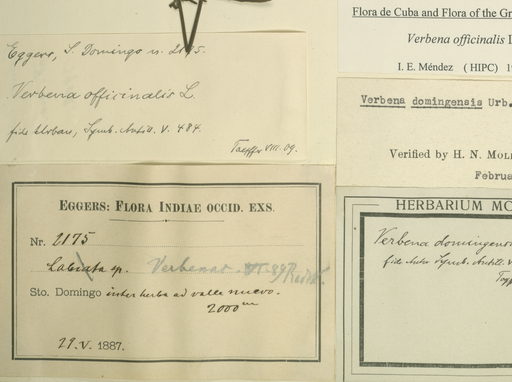 Eggers, S. Domingo n. 2175.
Verbena officinalis L.
fide Urban, Symb. Antill. V. 484.
Toepffer VIII. 09.
EGGERS: FLORA INDIAE OCCID. EXS.
Nr. 2175
Labiata sp. Verbenac.
Sto. Domingo inter herba ad valle nuevo.
2000 m
29. V. 1887.
Flora de Cuba and Flora of the Gr
Verbena officinalis L
I. E. Méndez (HIPC) 19
Verbena domingensis Urb.
Verified by H. N. MOL
Februa
HERBARIUM MO
Verbena domingens
fide Symb. Antill. V